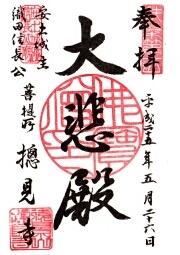 奉拝
平成二十五年五月二十六日
大悲殿
安土城主
織田信長公
菩提所
摠見寺